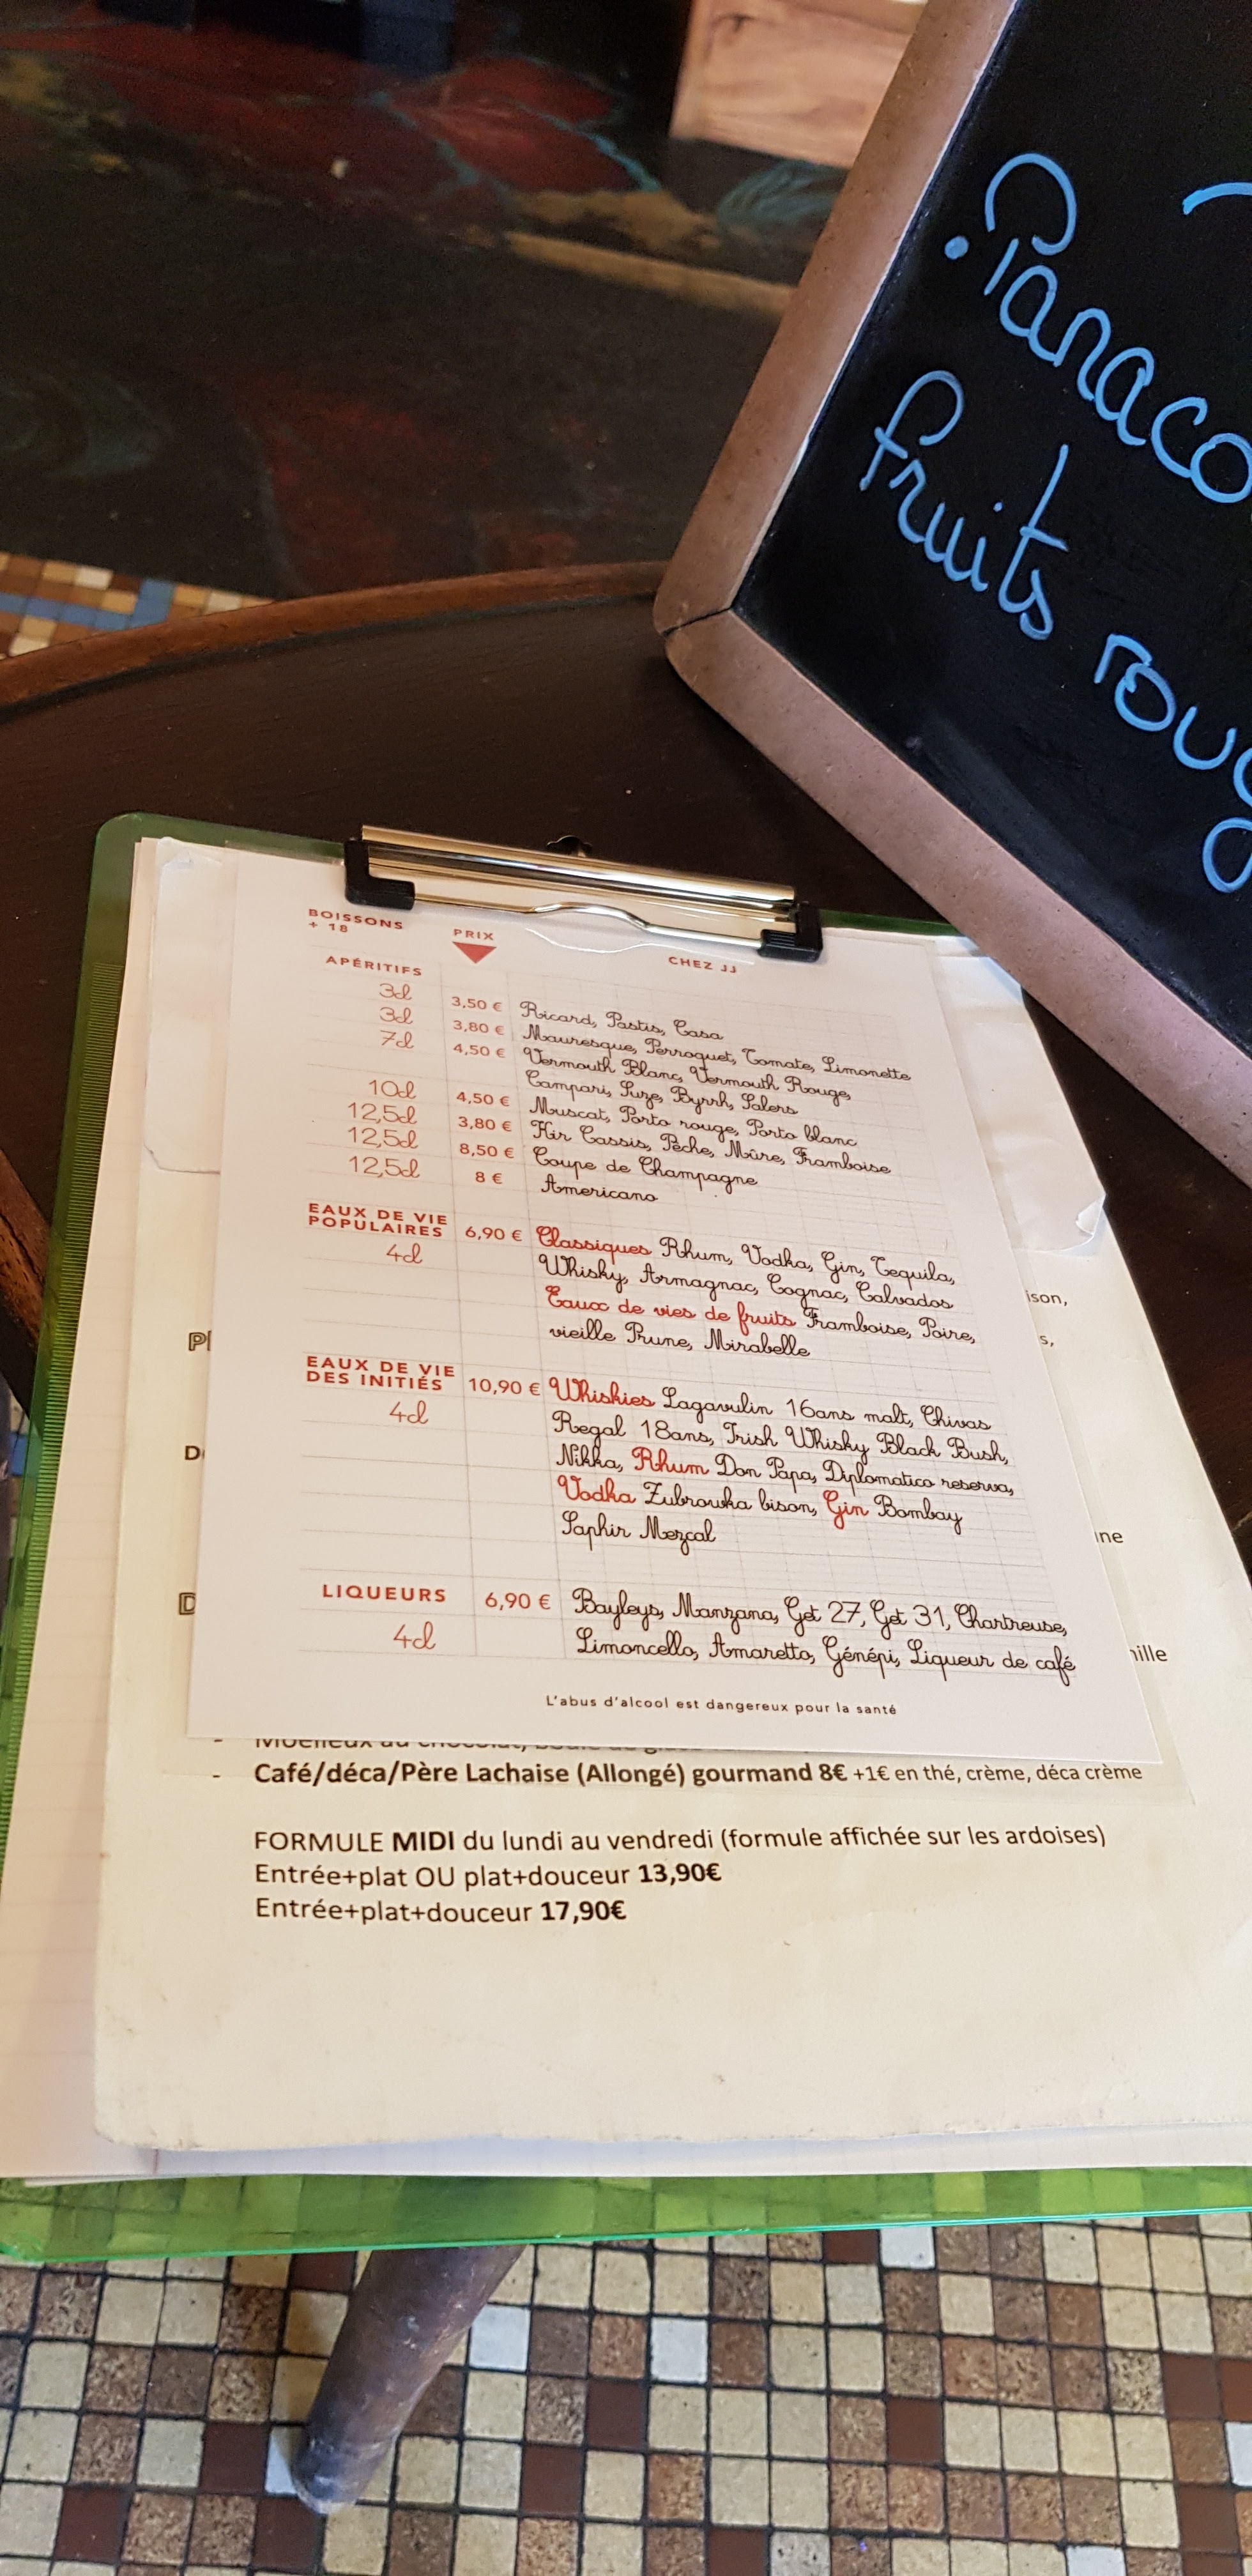 Panaco
fruits roug
BOISSONS
+ 18
PRIX
CHEZ JJ
APÉRITIFS
3cl 3,50 € Ricard, Pastis, Casa
3cl 3,80 € Mauresque, Perroquet, Tomate, Limonette
7cl 4,50 € Vermouth Blanc, Vermouth Rouge,
Campari, Suze, Byrrh, Salers
10cl 4,50 € Muscat, Porto rouge, Porto blanc
12,5cl 3,80 € Kir Cassis, Pêche, Mûre, Framboise
12,5cl 8,50 € Coupe de Champagne
12,5cl 8 € Americano
EAUX DE VIE
POPULAIRES 6,90 € Classiques Rhum, Vodka, Gin, Tequila,
4cl Whisky, Armagnac, Cognac, Calvados
Eaux de vies de fruits Framboise, Poire,
vieille Prune, Mirabelle
EAUX DE VIE
DES INITIÉS 10,90 € Whiskies Lagavulin 16ans malt, Chivas
4cl Regal 18ans, Irish Whisky Black Bush,
Nikka, Rhum Don Papa, Diplomatico reserva,
Vodka Zubrowka bison, Gin Bombay
Saphir Mezcal
LIQUEURS 6,90 € Bayleys, Manzana, Get 27, Get 31, Chartreuse,
4cl Limoncello, Amaretto, Génépi, Liqueur de café
L'abus d'alcool est dangereux pour la santé
ison,
s,
Pl
D
ine
D
nille
- Moelleux au chocolat,
- Café/déca/Père Lachaise (Allongé) gourmand 8€ +1€ en thé, crème, déca crème
FORMULE MIDI du lundi au vendredi (formule affichée sur les ardoises)
Entrée+plat OU plat+douceur 13,90€
Entrée+plat+douceur 17,90€